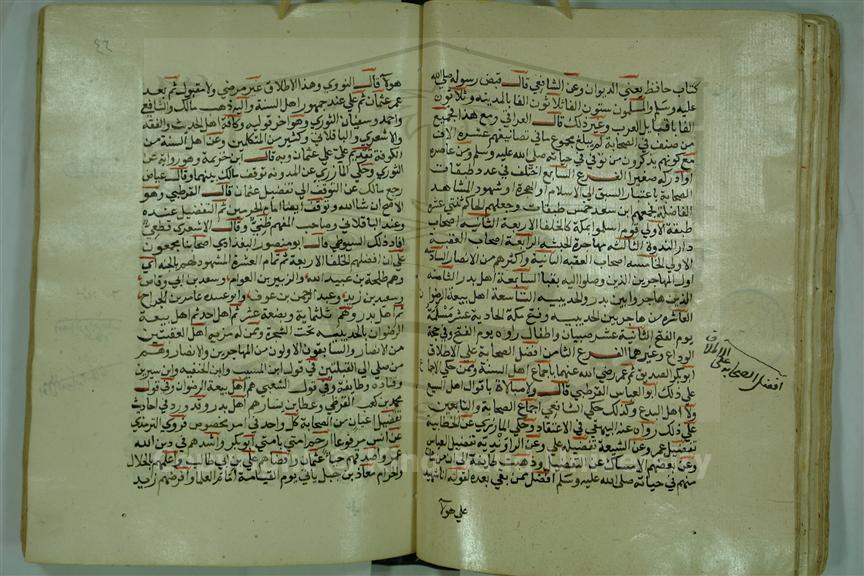 كتاب حافظ يعني الديوان وعن الشافعي قال قبض رسول صلى الله
عليه وسلم والمسلمون ستون الفا ثلاثون الفا بالمدينه وثلاثون
الفا بقبايل العرب وغير ذلك قال العراقي ومع هذا فجميع
من صنف في الصحابة لم يبلغ مجموع ما في تصانيفهم عشرة الاف
مع كونهم يذكرون من توفي في حياته صلى الله عليه وسلم ومن عاصره
او ادركه صغيرا الفرع السابع اختلف في عدد طبقات
الصحابة باعتبار السبق الى الاسلام او الهجرة او شهود المشاهد
الفاضلة فجعلهم ابن سعد خمس طبقات وجعلهم الحاكم ثنتي عشرة
طبقة الاولى قوم اسلموا بمكة كالخلفا الاربعة الثانية اصحاب
دار الندوة الثالثة مهاجرة الحبشة الرابعة اصحاب العقبة
الاولى الخامسة اصحاب العقبة الثانية واكثرهم من الانصار السادسة
اول المهاجرين الذين وصلوا اليه بقبا السابعة اهل بدر الثامنة
الذين هاجروا بين بدر والحديبية التاسعة اهل بيعة الرضوان
العاشرة من هاجر بين الحديبية وفتح مكة الحادية عشر مسلمة
يوم الفتح الثانية عشر صبيان واطفال راوه يوم الفتح وفي حجة
الوداع وغيرهما الفرع الثامن افضل الصحابة على الاطلاق
ابو بكر الصديق ثم عمر رضي الله عنهما باجماع اهل السنة وممن حكى الاجماع
على ذلك ابو العباس القرطبي قال ولا مبالاة باقوال اهل التشيع
ولا اهل البدع وكذلك حكى الشافعي اجماع الصحابة والتابعين
على ذلك رواه عنه البيهقي في الاعتقاد وحكى المازري عن الخطابية
تفضيل عمر وعن الشيعة تفضيل علي وعن الراوندية تفضيل العباس
وعن بعضهم الامساك عن التفضيل
منهم في حياته صلى الله عليه وسلم افضل ممن بقي بعده لقوله انا شهيد
على هولا
افضل الصحابة على الاطلاق
هولا قال النووي وهذا الاطلاق غير مرضي ولا مقبول ثم بعد
عمر عثمان ثم علي عند جمهور اهل السنة واليه ذهب مالك والشافعي
واحمد وسفيان الثوري وهو اخر قوليه وكافة اهل الحديث والفقه
والاشعري والباقلاني وكثير من المتكلمين وعن اهل السنة من
الكوفة تقديم علي على عثمان وبه قال ابن خزيمة وهو رواية عن
الثوري وحكى المازري عن المدونه توقف مالك بينهما وقال عياض
رجع مالك عن التوقف الى تفضيل عثمان قال القرطبي وهو
الاصح ان شا الله وتوقف ايضا امام الحرمين ثم التفضيل عنده
وعند الباقلاني وصاحب المفهم ظني وقال الاشعري قطعي
افاد ذلك السيوطي قال ابو منصور البغدادي اصحابنا مجمعون
على ان افضلهم الخلفا الاربعة ثم تمام العشرة المشهود لهم بالجنة اي
وهم طلحة بن عبيد الله والزبير بن العوام وسعد بن ابي وقاص
وسعيد بن زيد وعبد الرحمن بن عوف وابو عبيده عامر بن الجراح
ثم اهل بدر وهم ثلثماية وبضعة عشر ثم اهل احد ثم اهل بيعة
الرضوان بالحديبية تحت الشجرة وممن له مزية اهل العقبتين
من الانصار والسابقون الاولون من المهاجرين والانصار وهم
من صلى الى القبلتين في قول ابن المسيب وابن الحنفيه وابن سيرين
وقتادة وطايفة وفي قول الشعبي هم اهل بيعة الرضوان وفي قول
محمد بن كعب القرظي وعطا بن يسار هم اهل بدر وقد ورد في احاديث
تفضيل اعيان من الصحابة كل واحد في امر مخصوص فروى الترمذي
عن انس مرفوعا ارحم امتي بامتي ابو بكر واشدهم في دين الله
عمر واصدقهم حيا عثمان واقضاهم علي بن ابي طالب واعلمهم بالحلال
والحرام معاذ بن جبل ياتي يوم القيامة امام العلما وافرضهم زيد